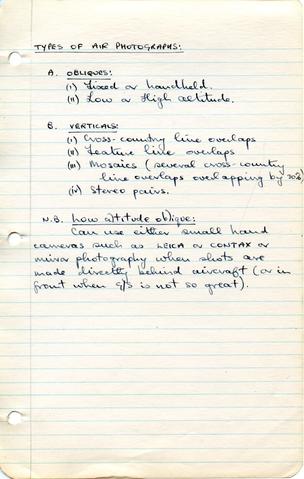 TYPES OF AIR PHOTOGRAPHS:
A. OBLIQUES:
(i) Fixed or handheld.
(ii) Low or High altitude.
B. VERTICALS:
(i) Cross-country line overlaps
(ii) Feature line overlaps
(iii) Mosaics (several cross-country
line overlaps overlapping by 30%)
(iv) Stereo pairs.
N.B. Low altitude oblique:
Can use either small hand
cameras such as LEICA or CONTAX or
mirror photography when shots are
made directly behind aircraft (or in
front when G/S is not so great).